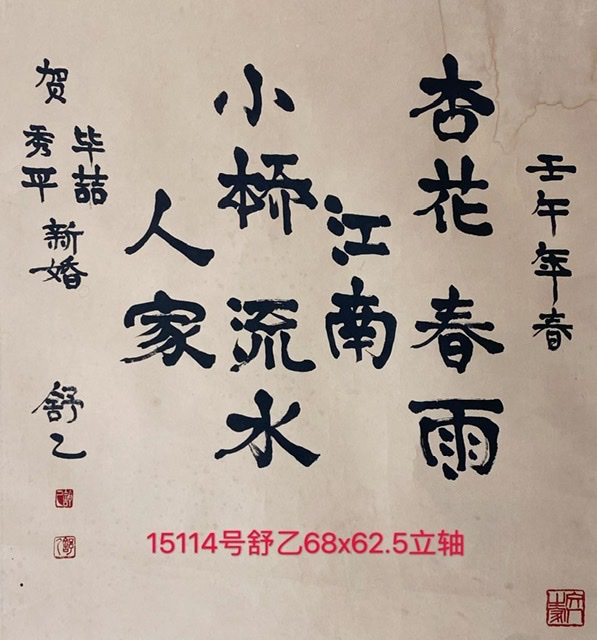 壬午年春
杏花春雨
江南
小桥流水
人家
贺
毕喆
秀平
新婚
舒乙
15114号舒乙68x62.5立轴